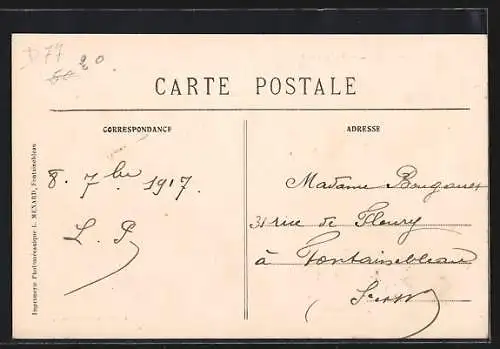 D77
20
CARTE POSTALE
CORRESPONDANCE
ADRESSE
8. 7bre 1917.
L. P
Madame
31 rue de Fleury
à Fontainebleau
Imprimerie Photomécanique L. MENARD, Fontainebleau